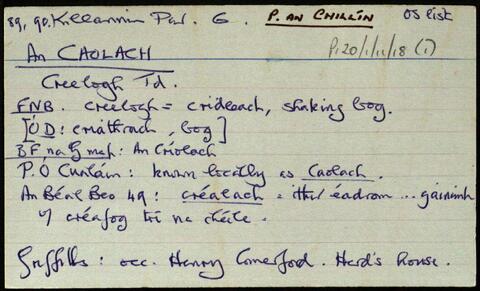 89, 90. Killannin Par. G. P. AN CHILLÍN OS list
An CAOLACH P. 20/1/11/18 (1)
Creelogh Td.
FNB. Creelogh = crideach, shaking bog.
[ÓD: criáthrach, bog]
BF na gceap: An Críolach
P. Ó Curráin: known locally as Caolach.
An Béal Beo 49: créalach = ithir éadrom ... gainimh
⁊ créafóg trí na chéile.
Griffiths: occ. Henry Comerford. Herd's house.